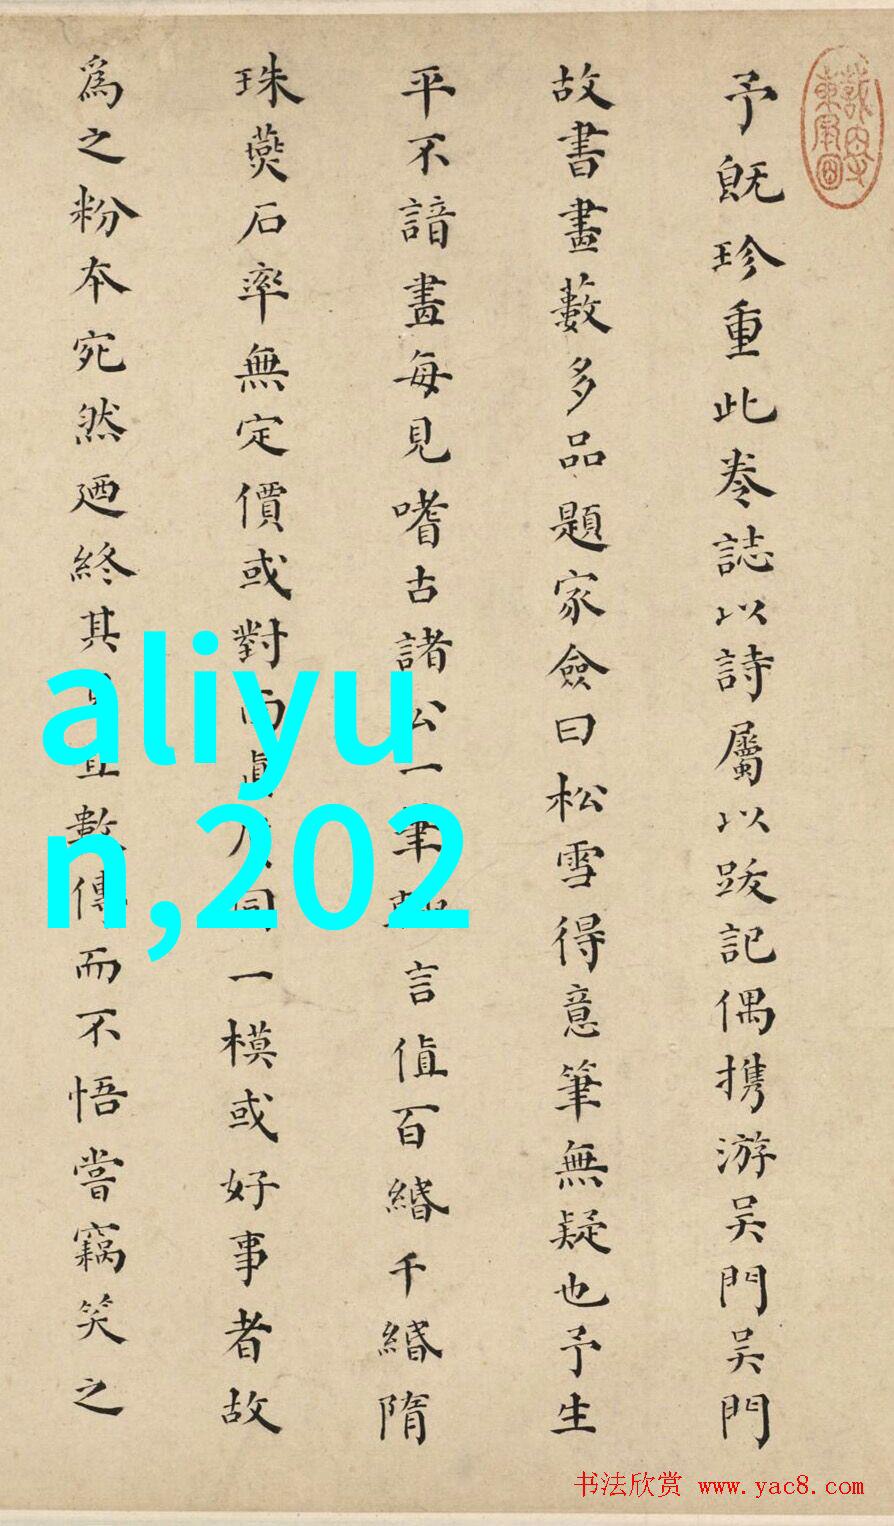 予既珍重此卷誌以詩屬以跋記偶携游吳門吳門
故書畫藪多品題家僉曰松雪得意筆無疑也予生
平不諳畫每見嗜古諸公一筆言值百緡千緡隋
珠燕石率無定價或對眞同一模或好事者故
為之粉本宛然迺終其數傳而不悟嘗竊笑之
aliyu
n,202
书法欣赏 www.yac8.com